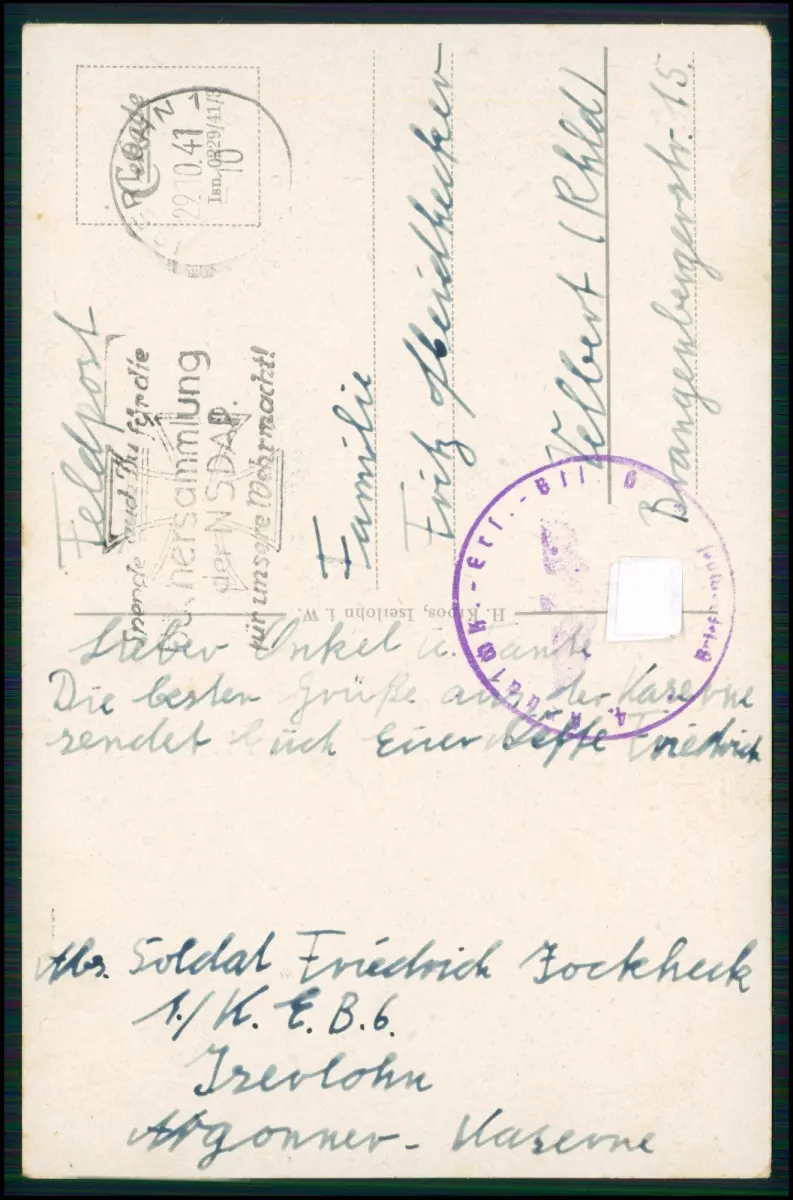 Feldpost
29.10.41
10
Isn. 0829/41/3
Spende auch Du für die
Büchersammlung
der NSDAP.
für unsere Wehrmacht!
Familie
Fritz
Velbert (Rhld)
Brangenbergerstr. 15.
H. Kipos, Iserlohn i. W.
Lieber Onkel u. Tante
Die besten Grüße aus der Kaserne
sendet Euch Euer Neffe Friedrich
Abs. Soldat Friedrich Jockheck
1./K. E. B. 6.
Iserlohn
Argonner-Kaserne
Briefstempel